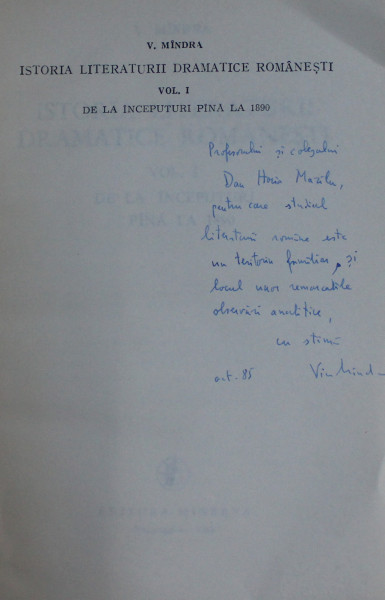 V. MÎNDRA
ISTORIA LITERATURII DRAMATICE ROMÂNEȘTI
VOL. I
DE LA ÎNCEPUTURI PÎNĂ LA 1890
Profesorului și colegului
Dan Horia Mazilu,
pentru care studiul
literaturii române este
un teritoriu familiar, și
locul unor remarcabile
observații analitice,
cu stimă
oct. 85 V. Mîndra